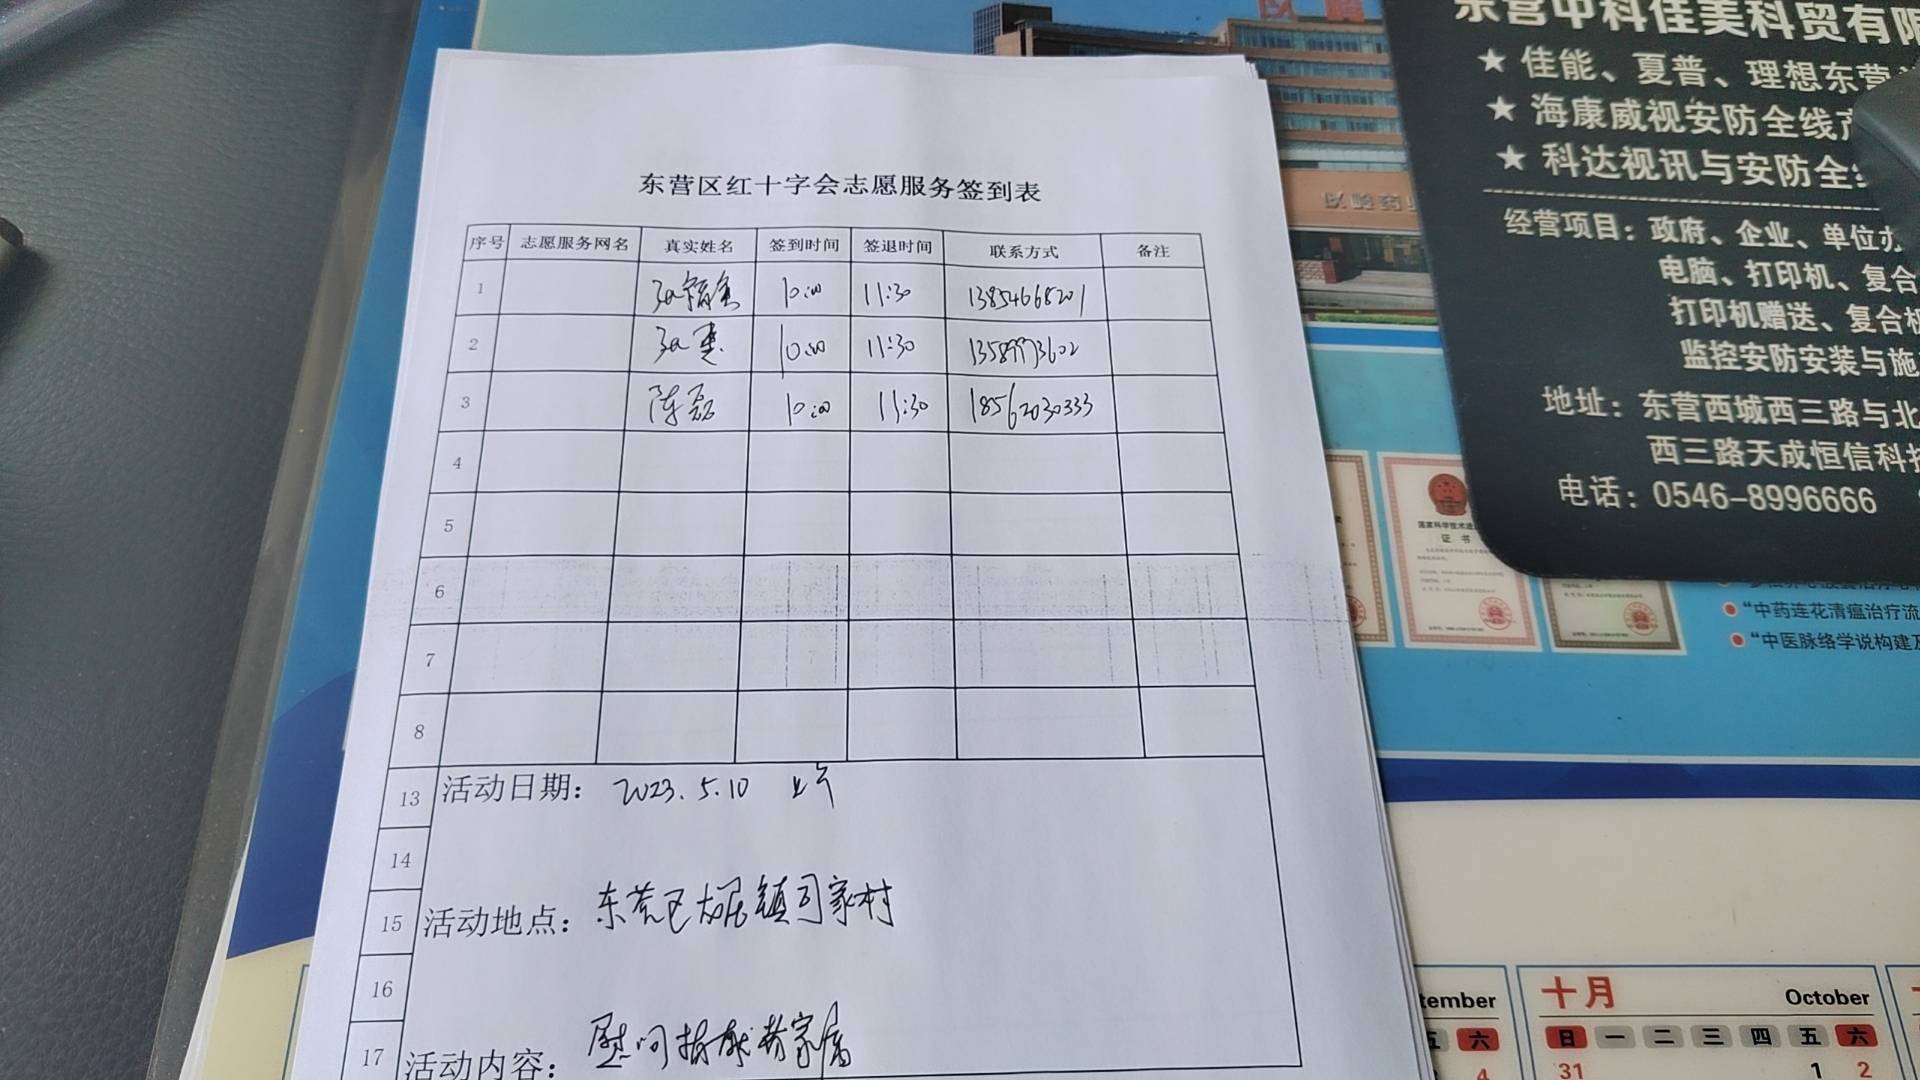 东营区红十字会志愿服务签到表
序号 志愿服务网名 真实姓名 签到时间 签退时间 联系方式 备注
1 10:00 11:30 13854668201
2 10:00 11:30 13589973602
3 陈磊 10:00 11:30 18562030333
4
5
6
7
8
13 活动日期: 2023.5.10 上午
14
15 活动地点: 东营区 镇司家村
16
17 活动内容: 慰问捐献者家属
东营中科佳美科贸有限
★ 佳能、夏普、理想东营
★ 海康威视安防全线产
★ 科达视讯与安防全
经营项目: 政府、企业、单位办
电脑、打印机、复合
打印机赠送、复合机
监控安防安装与施
地址: 东营西城西三路与北
西三路天成恒信科技
电话: 0546-8996666
以岭药业
证书
“中药连花清瘟治疗流
“中医脉络学说构建及
tember
五 六
4
十月 October
日 一 二 三 四 五 六
31 1 2